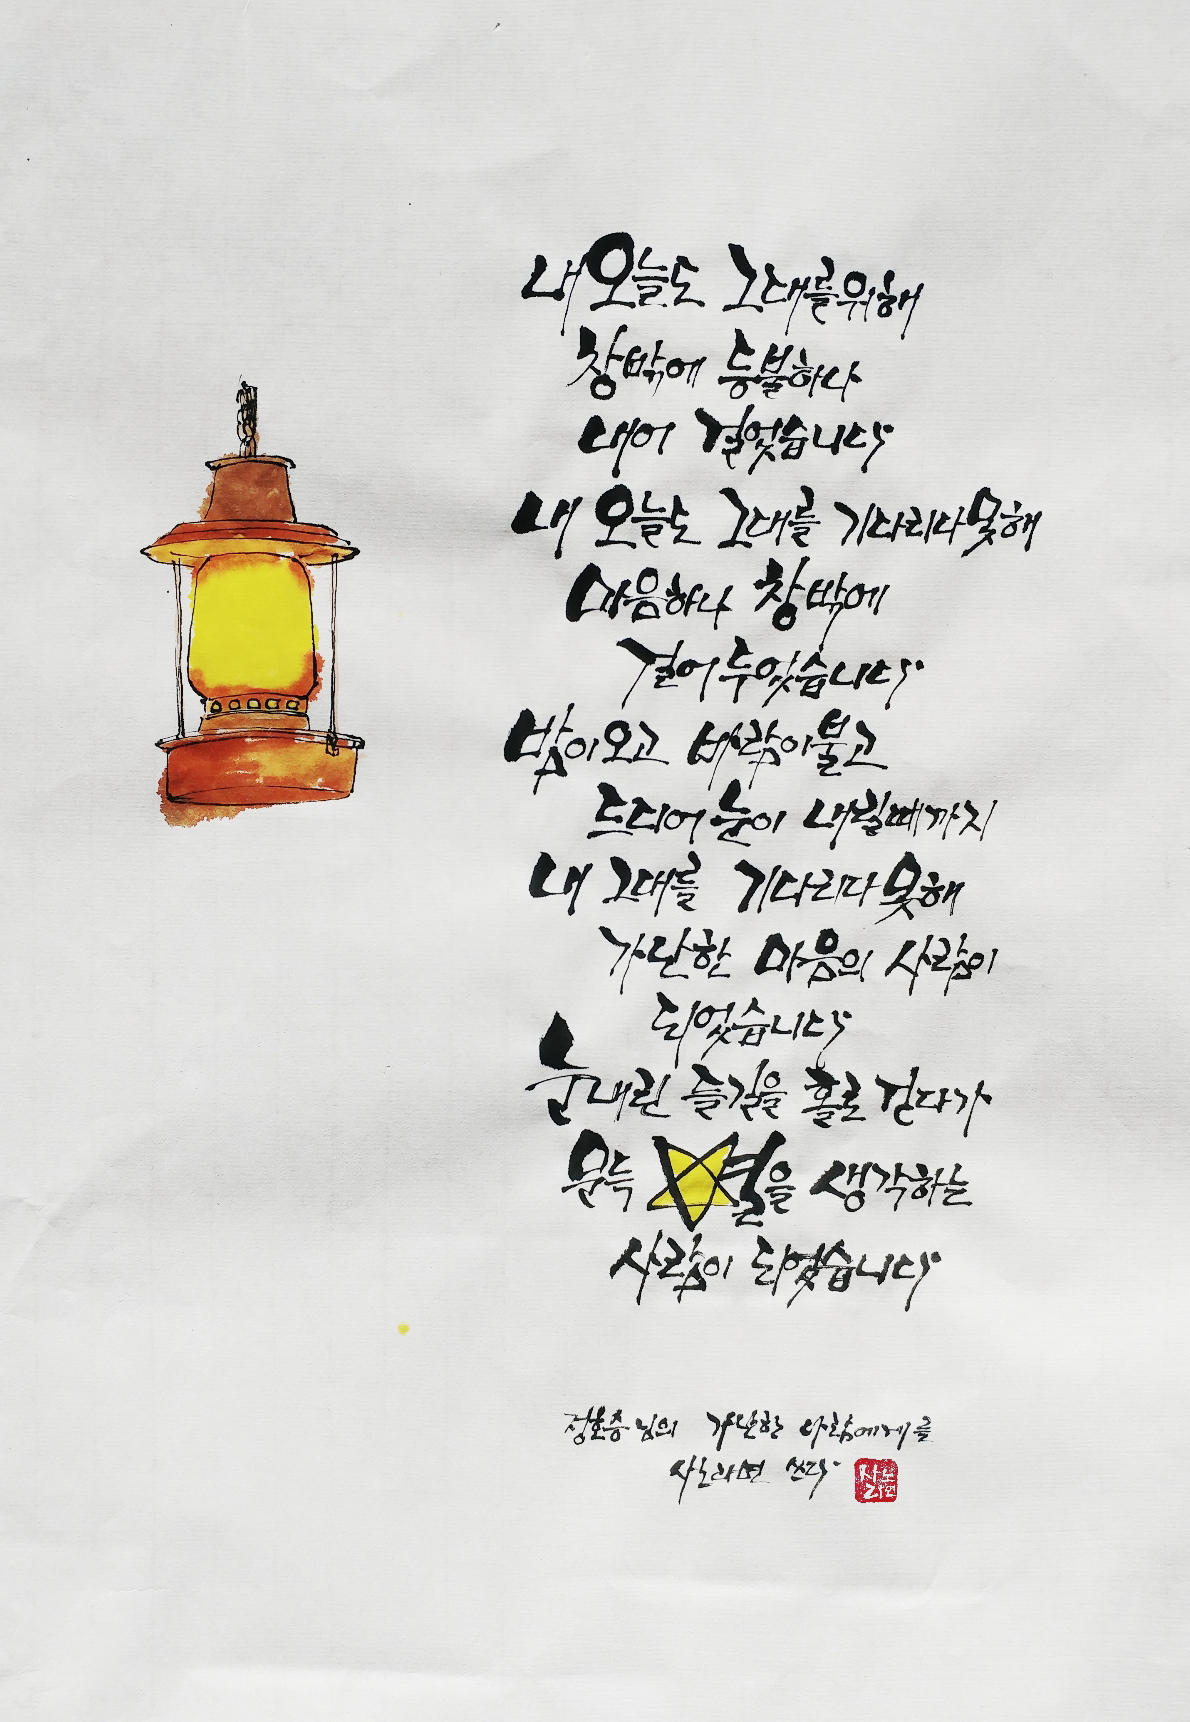 내 오늘도 그대를 위해
창밖에 등불하나
내어 걸었습니다
내 오늘도 그대를 기다리다 못해
마음하나 창밖에
걸어 두었습니다
밤이 오고 바람이 불고
드디어 눈이 내릴때까지
내 그대를 기다리다 못해
가난한 마음의 사람이
되었습니다
눈내린 들길을 홀로 걷다가
문득 별을 생각하는
사람이 되었습니다
정호승 님의 가난한 사람에게를
사노라면 쓰다
사노
라면